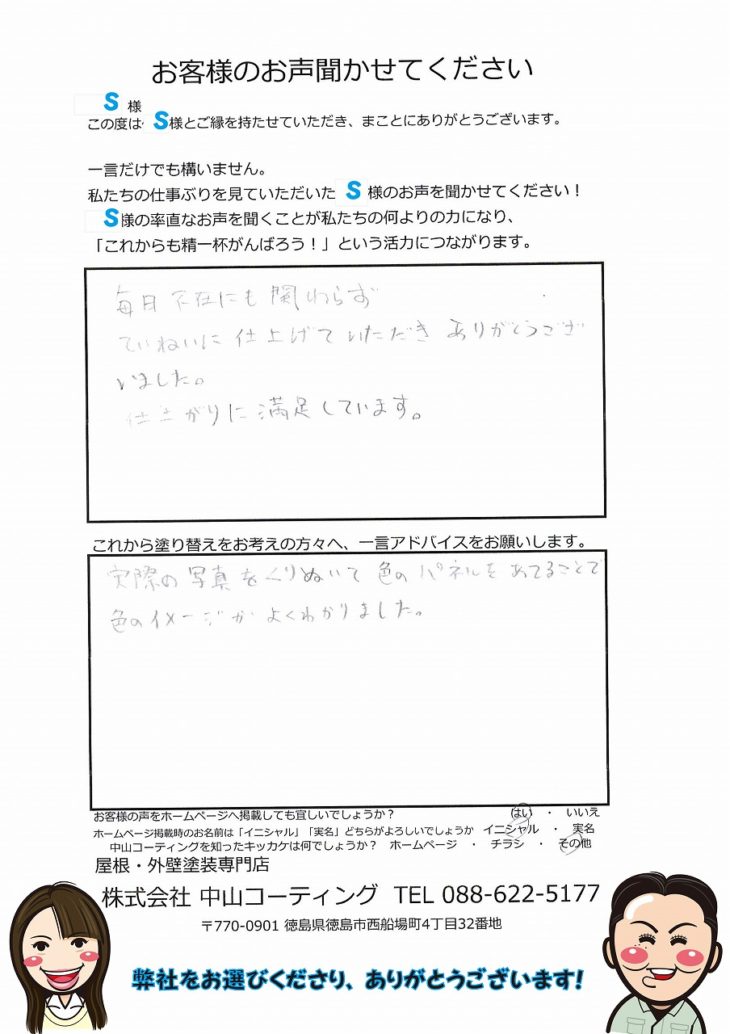 お客様のお声聞かせてください
S 様
この度は S様とご縁を持たせていただき、まことにありがとうございます。
一言だけでも構いません。
私たちの仕事ぶりを見ていただいた S 様のお声を聞かせてください！
S様の率直なお声を聞くことが私たちの何よりの力になり、
「これからも精一杯がんばろう！」という活力につながります。
毎日不在にも関わらず
ていねいに仕上げていただきありがとうござ
いました。
仕上がりに満足しています。
これから塗り替えをお考えの方々へ、一言アドバイスをお願いします。
実際の写真をくりぬいて色のパネルをあてることで
色のイメージがよくわかりました。
お客様の声をホームページへ掲載しても宜しいでしょうか？ はい ・ いいえ
ホームページ掲載時のお名前は「イニシャル」「実名」どちらがよろしいでしょうか イニシャル ・ 実名
中山コーティングを知ったキッカケは何でしょうか？ ホームページ ・ チラシ ・ その他
屋根・外壁塗装専門店
株式会社 中山コーティング TEL 088-622-5177
〒770-0901 徳島県徳島市西船場町4丁目32番地
弊社をお選びくださり、ありがとうございます!